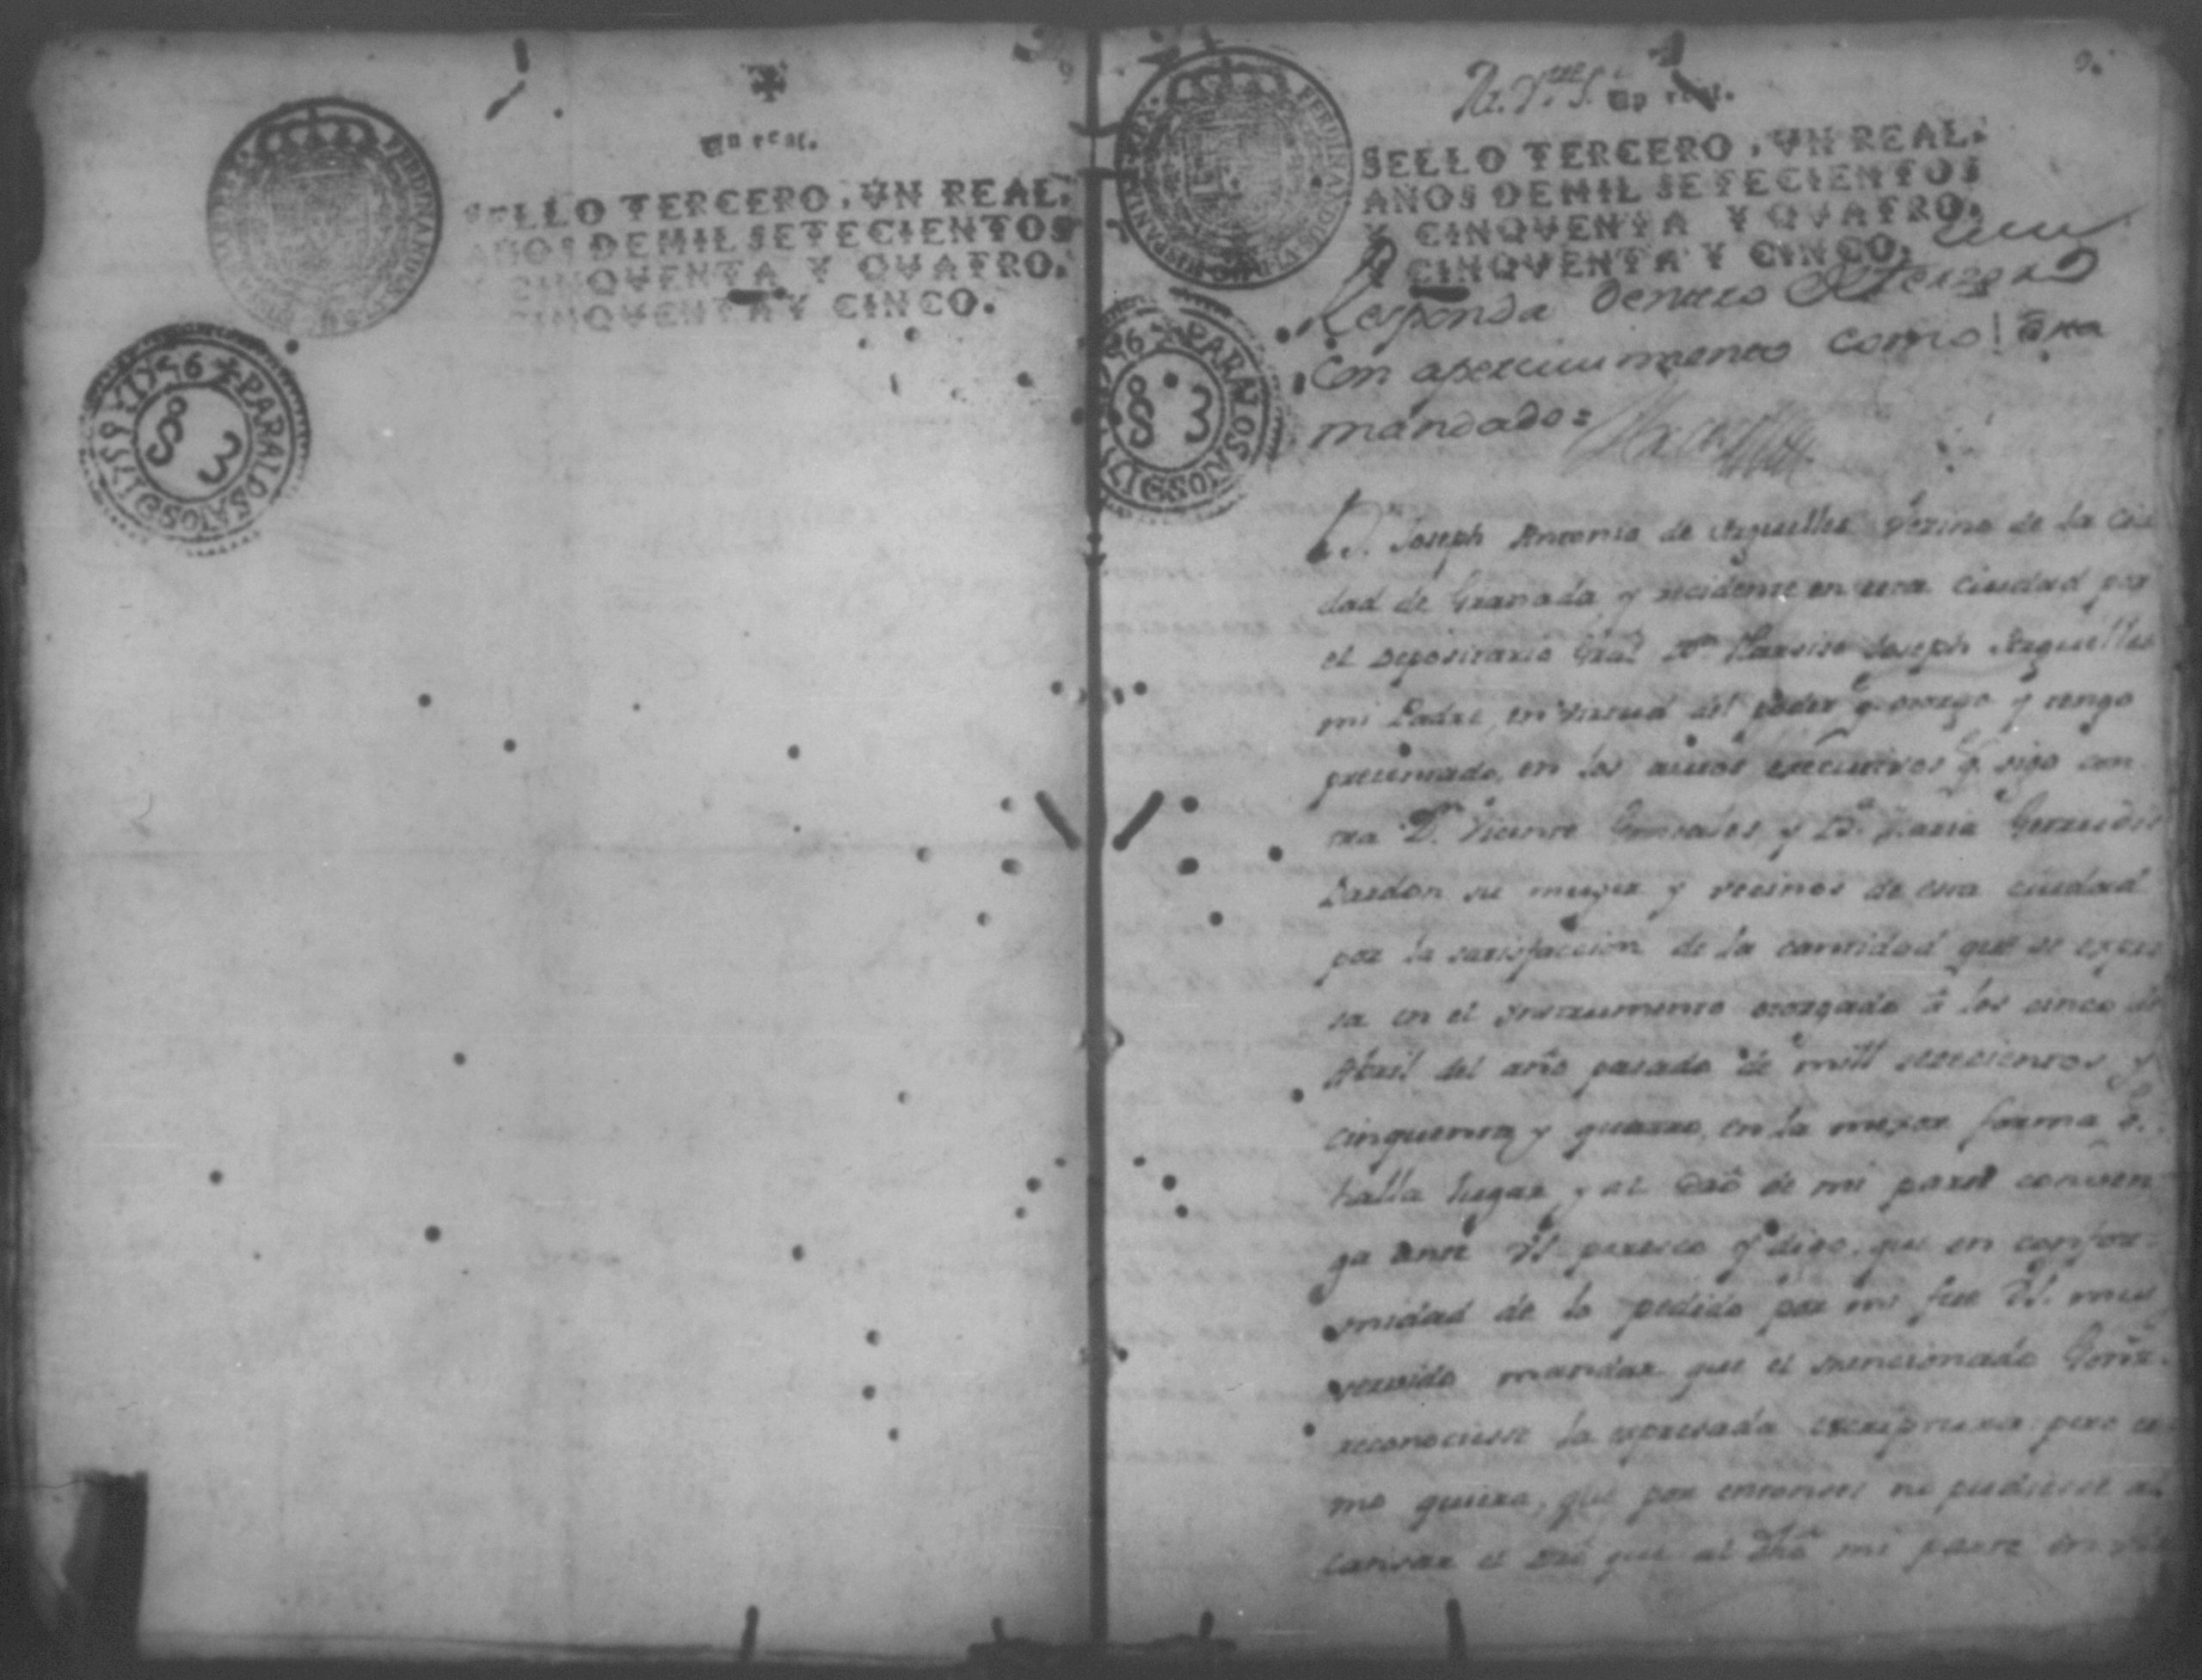 Un real.
SELLO TERCERO, VN REAL,
AÑOS DE MIL SETECIENTOS
Y CINQVENTA Y QVATRO,
CINQVENTA Y CINCO.
PARA LOS AÑOS DE 1756
Un real.
SELLO TERCERO, VN REAL,
AÑOS DE MIL SETECIENTOS
Y CINQVENTA Y QVATRO,
Y CINQVENTA Y CINCO.
PARA LOS AÑOS
Responda dentro
Con apercivimiento como
mandado =
Joseph Antonio de Arguelles Vezino de la Ciu
dad de Granada y recidente en esta Ciudad por
el Depositario Gral Dn Narsiso Joseph Arguelles
mi Padre, en virtud del poder q̃ otorgo y tengo
presentado, en los autos executivos q̃ sigo con
tra Dn Vicente Gonsales, y Da Maria Gertrudis
su muger y vecinos de esta ciudad
por la satisfaccion de la cantidad que se expre
sa en el ynstrumento otorgado â los cinco de
Abril del año pasado de mill setecientos y
cinquenta y quatro, en la mejor forma q̃
halla lugar y al dro de mi parte conven
ga ante VS. paresco y digo, que en confor
midad de lo pedido por mi fue VS. mui
servido mandar que el mencionado Gonz.
reconociese la expresada escriptura: pero co
mo quiera, que por entonces no pudiese al
cansar el que al mi parte